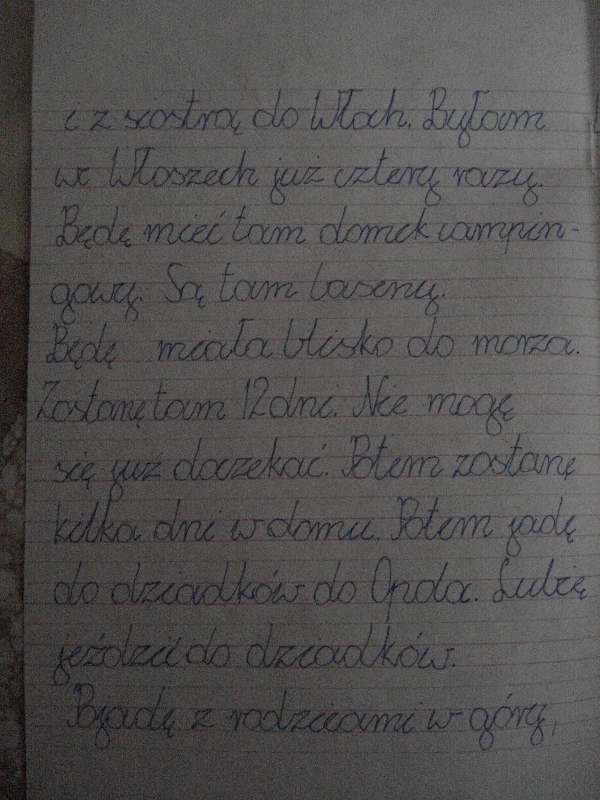 i z siostrą do Włoch. Byłam
we Włoszech już cztery razy.
Będę mieć tam domek campin-
gowy. Są tam baseny.
Będę miała blisko do morza.
Zostanę tam 12 dni. Nie mogę
się już doczekać. Potem zostanę
kilka dni w domu. Potem jadę
do dziadków do Opola. Lubię
jeździć do dziadków.
Pojadę z rodzicami w góry,